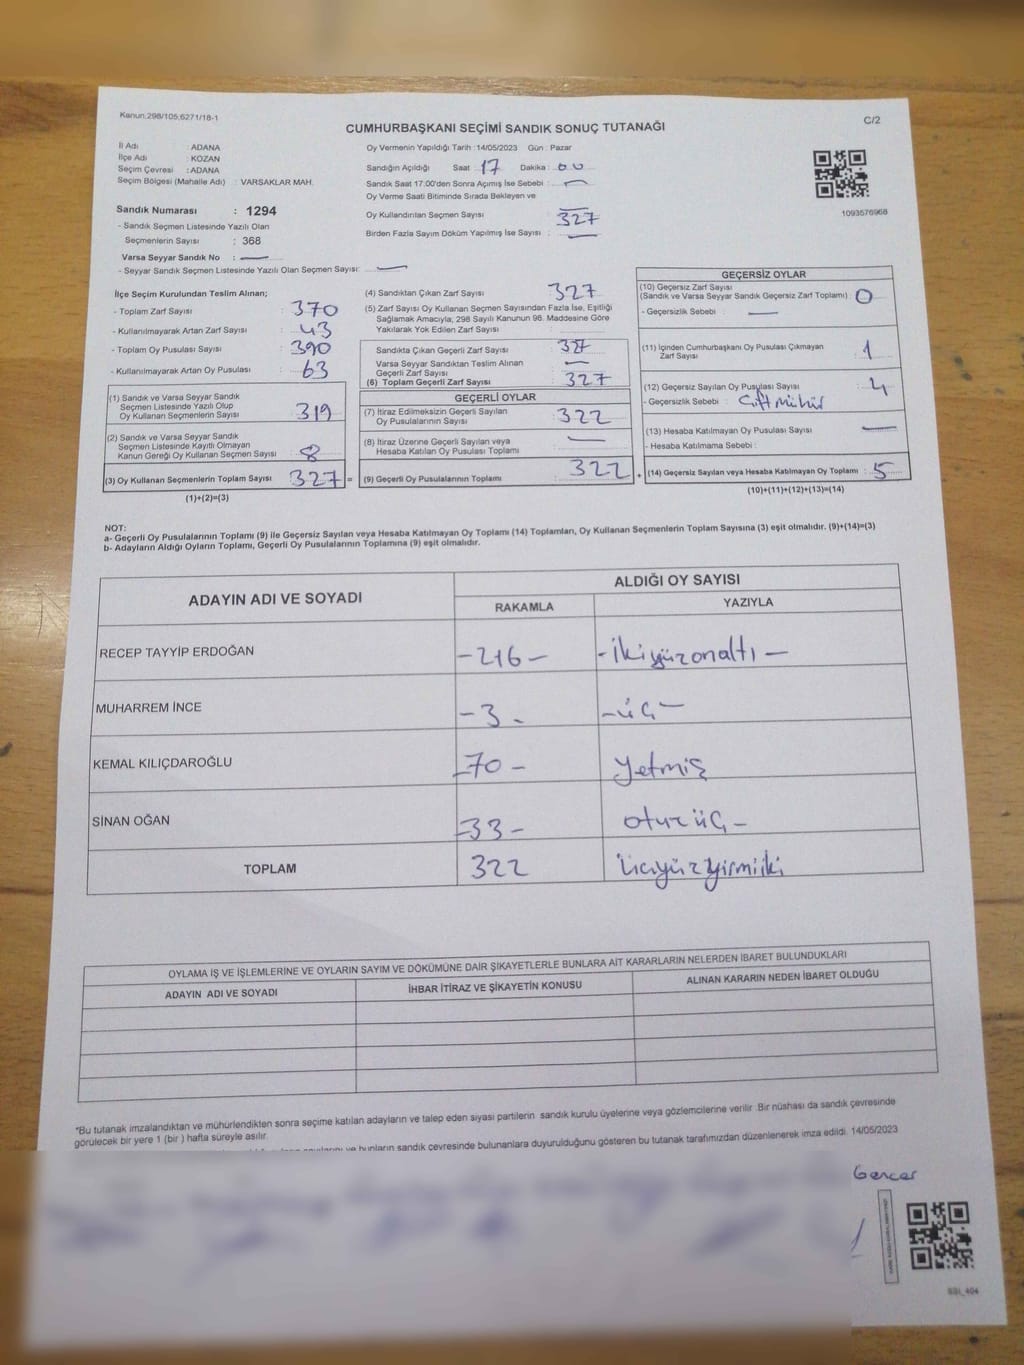 Kanun.298/105;6271/18-1
C/2
CUMHURBAŞKANI SEÇİMİ SANDIK SONUÇ TUTANAĞI
İl Adı : ADANA
İlçe Adı : KOZAN
Seçim Çevresi : ADANA
Seçim Bölgesi (Mahalle Adı) : VARSAKLAR MAH.
Sandık Numarası : 1294
- Sandık Seçmen Listesinde Yazılı Olan
Seçmenlerin Sayısı : 368
Varsa Seyyar Sandık No : —
- Seyyar Sandık Seçmen Listesinde Yazılı Olan Seçmen Sayısı: —
Oy Vermenin Yapıldığı Tarih : 14/05/2023 Gün : Pazar
Sandığın Açıldığı Saat 17 Dakika : 00
Sandık Saat 17.00'den Sonra Açımış İse Sebebi : —
Oy Verme Saati Bitiminde Sırada Bekleyen ve
Oy Kullandırılan Seçmen Sayısı : 327
Birden Fazla Sayım Döküm Yapılmış İse Sayısı : —
1093576968
İlçe Seçim Kurulundan Teslim Alınan;
- Toplam Zarf Sayısı : 370
- Kullanılmayarak Artan Zarf Sayısı : 43
- Toplam Oy Pusulası Sayısı : 390
- Kullanılmayarak Artan Oy Pusulası : 63
(1) Sandık ve Varsa Seyyar Sandık
Seçmen Listesinde Yazılı Olup
Oy Kullanan Seçmenlerin Sayısı : 319
(2) Sandık ve Varsa Seyyar Sandık
Seçmen Listesinde Kayıtlı Olmayan
Kanun Gereği Oy Kullanan Seçmen Sayısı : 8
(3) Oy Kullanan Seçmenlerin Toplam Sayısı : 327 =
(1)+(2)=(3)
(4) Sandıktan Çıkan Zarf Sayısı : 327
(5) Zarf Sayısı Oy Kullanan Seçmen Sayısından Fazla İse, Eşitliği
Sağlamak Amacıyla, 298 Sayılı Kanunun 98. Maddesine Göre
Yakılarak Yok Edilen Zarf Sayısı :
Sandıkta Çıkan Geçerli Zarf Sayısı : 327
Varsa Seyyar Sandıktan Teslim Alınan
Geçerli Zarf Sayısı : —
(6) Toplam Geçerli Zarf Sayısı : 327
GEÇERLİ OYLAR
(7) İtiraz Edilmeksizin Geçerli Sayılan
Oy Pusulalarının Sayısı : 322
(8) İtiraz Üzerine Geçerli Sayılan veya
Hesaba Katılan Oy Pusulası Toplamı : —
(9) Geçerli Oy Pusulalarının Toplamı : 322 +
GEÇERSİZ OYLAR
(10) Geçersiz Zarf Sayısı
(Sandık ve Varsa Seyyar Sandık Geçersiz Zarf Toplamı) : 0
- Geçersizlik Sebebi : —
(11) İçinden Cumhurbaşkanı Oy Pusulası Çıkmayan
Zarf Sayısı : 1
(12) Geçersiz Sayılan Oy Pusulası Sayısı : 4
- Geçersizlik Sebebi : Çift mühür
(13) Hesaba Katılmayan Oy Pusulası Sayısı : —
- Hesaba Katılmama Sebebi :
(14) Geçersiz Sayılan veya Hesaba Katılmayan Oy Toplamı : 5
(10)+(11)+(12)+(13)=(14)
NOT:
a- Geçerli Oy Pusulalarının Toplamı (9) ile Geçersiz Sayılan veya Hesaba Katılmayan Oy Toplamı (14) Toplamları, Oy Kullanan Seçmenlerin Toplam Sayısına (3) eşit olmalıdır. (9)+(14)=(3)
b- Adayların Aldığı Oyların Toplamı, Geçerli Oy Pusulalarının Toplamına (9) eşit olmalıdır.
ADAYIN ADI VE SOYADI
ALDIĞI OY SAYISI
RAKAMLA YAZIYLA
RECEP TAYYİP ERDOĞAN -216- -İkiyüzonaltı-
MUHARREM İNCE -3- -üç-
KEMAL KILIÇDAROĞLU -70- Yetmiş
SİNAN OĞAN -33- otuzüç-
TOPLAM 322 Üçyüzyirmiiki
OYLAMA İŞ VE İŞLEMLERİNE VE OYLARIN SAYIM VE DÖKÜMÜNE DAİR ŞİKAYETLERLE BUNLARA AİT KARARLARIN NELERDEN İBARET BULUNDUKLARI
ADAYIN ADI VE SOYADI İHBAR İTİRAZ VE ŞİKAYETİN KONUSU ALINAN KARARIN NEDEN İBARET OLDUĞU
*Bu tutanak imzalandıktan ve mühürlendikten sonra seçime katılan adayların ve talep eden siyasi partilerin sandık kurulu üyelerine veya gözlemcilerine verilir. Bir nüshası da sandık çevresinde
görülecek bir yere 1 (bir) hafta süreyle asılır.
ve bunların sandık çevresinde bulunanlara duyurulduğunu gösteren bu tutanak tarafımızdan düzenlenerek imza edildi. 14/05/2023